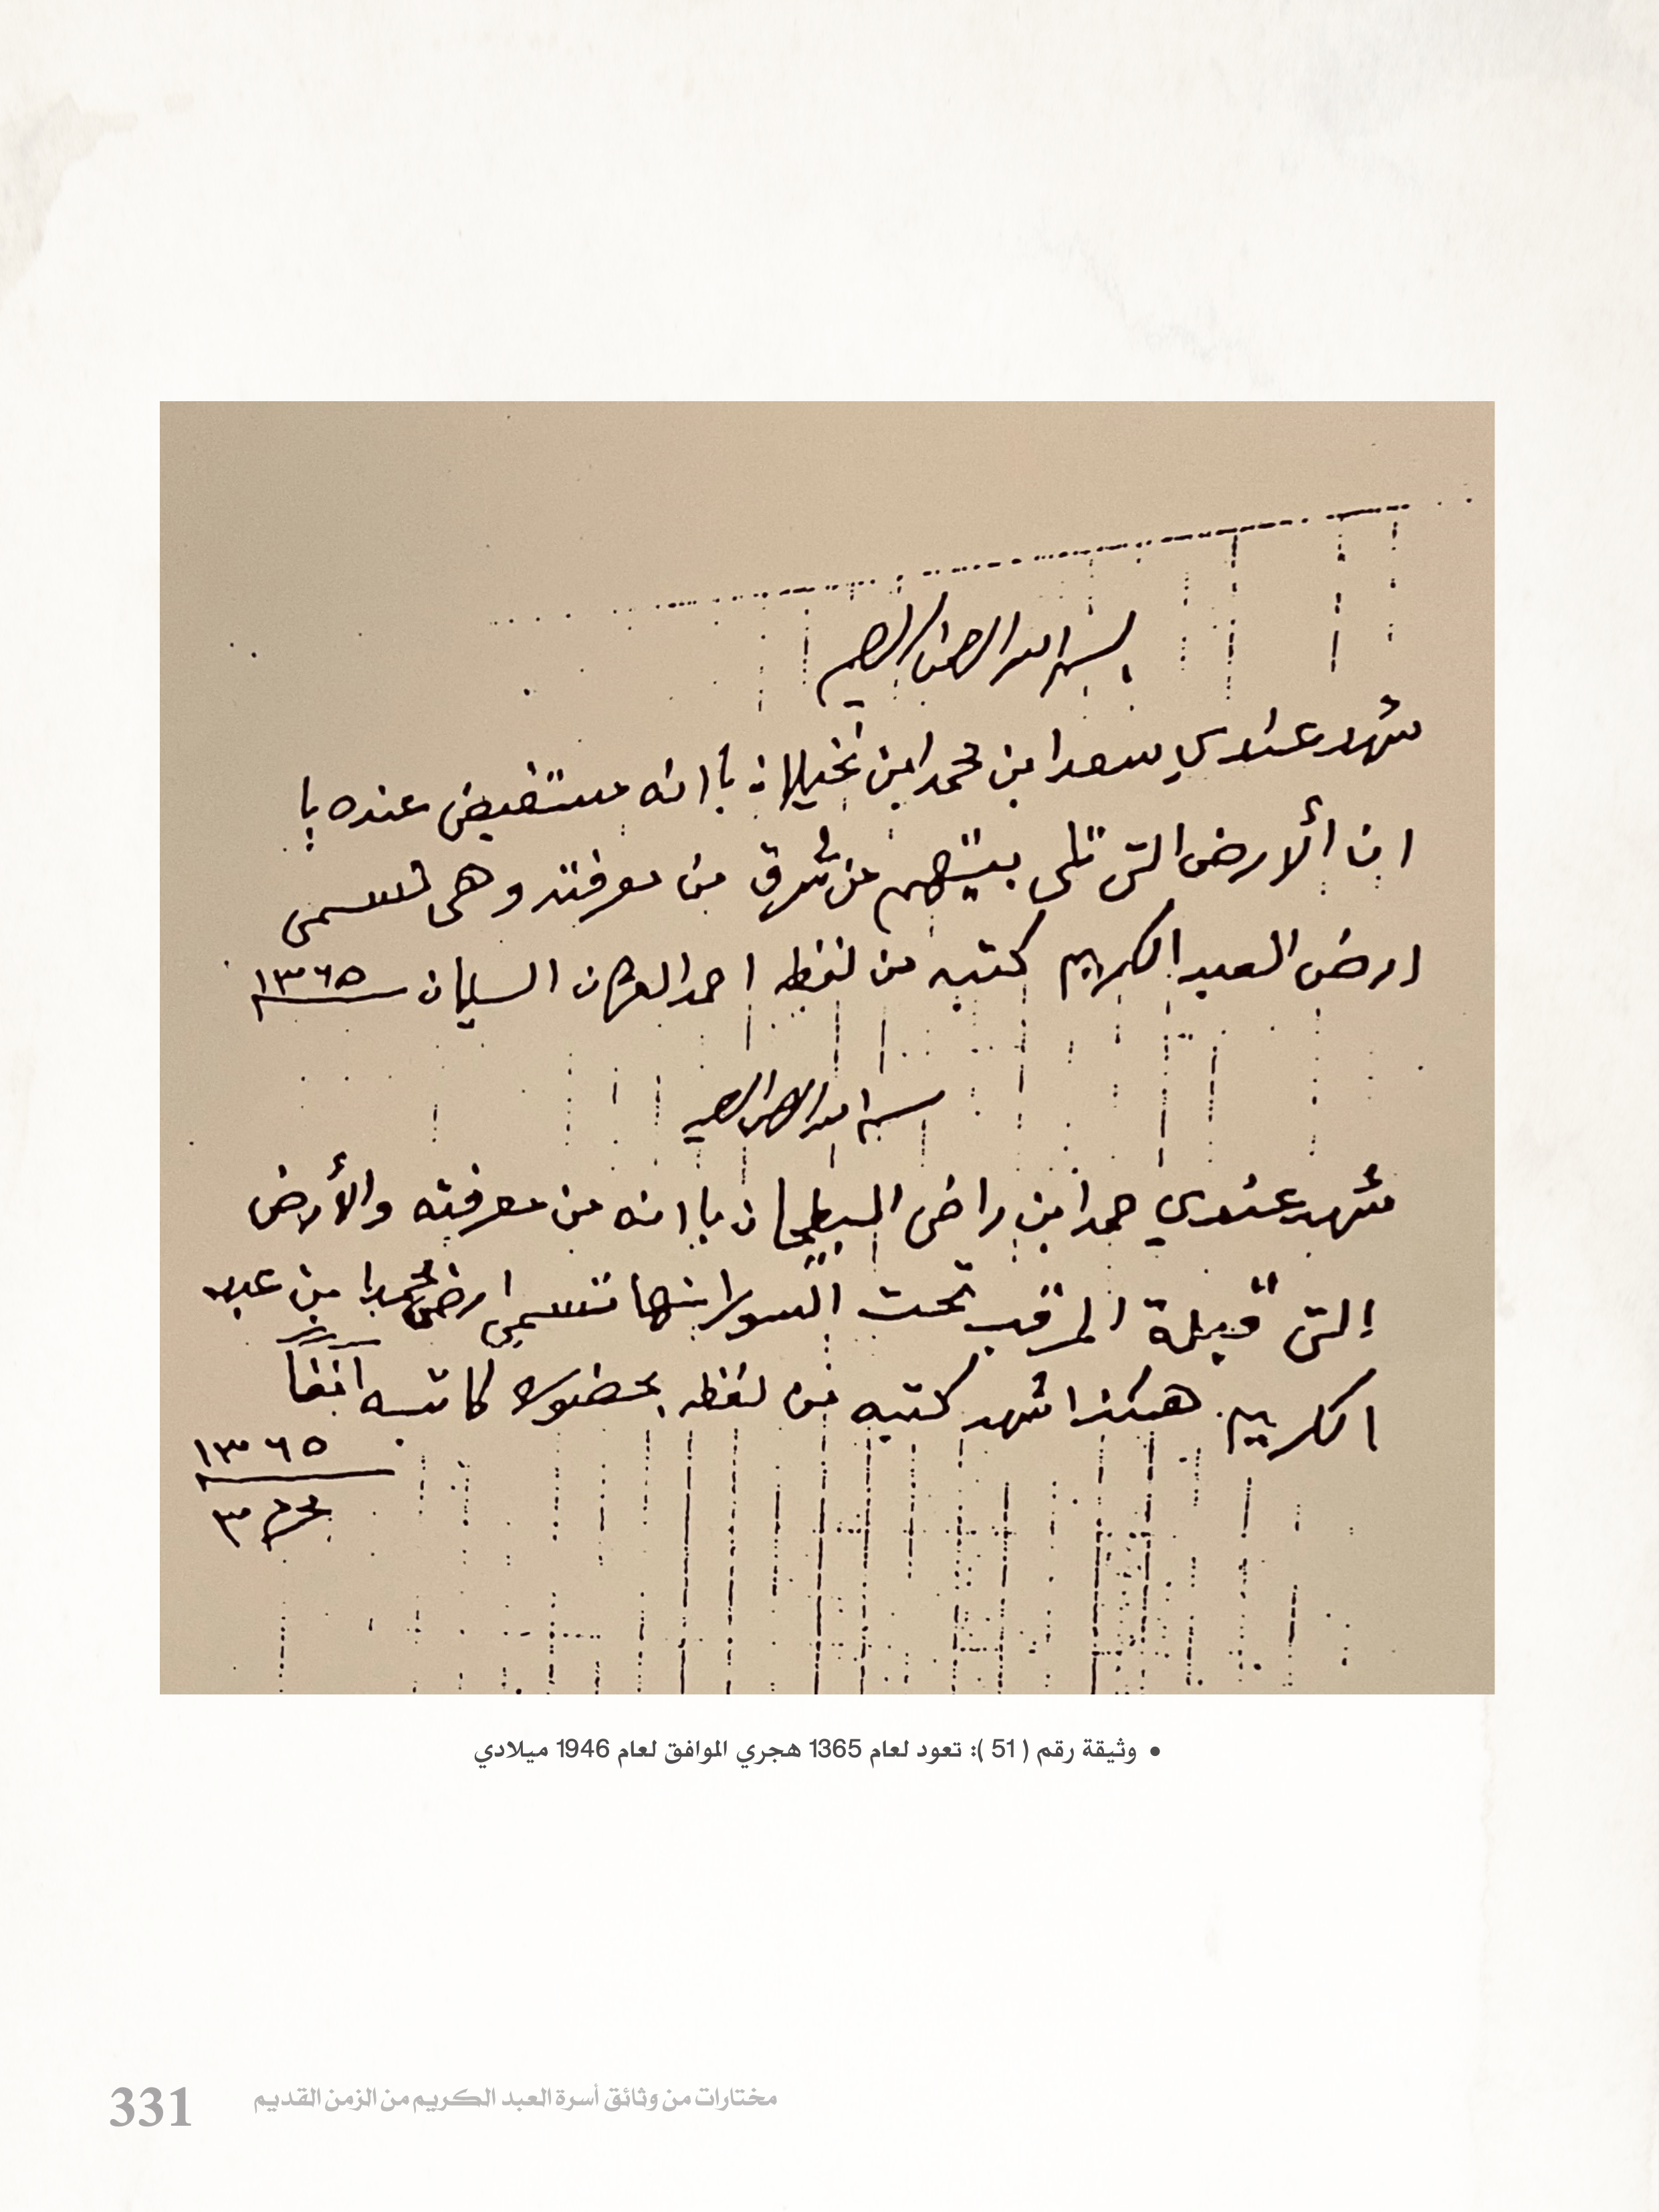 بسم الله الرحمن الرحيم
شهد عندي سعد ابن محمد ابن نخيلان باانه مستفيض عنده با
ان ألارض التى تلى بيتهم من شرق من معرفته وهى تسمى
ارض العبد الكريم كتبه من لفظه احمد السليمان ١٣٦٥
بسم الله الرحمن الرحيم
شهد عندي حمد ابن راضى البطيحان باانه من معرفته والأرض
التى قبيلة المرقب تحت السور انها تسمى ارض محمد ابن عبد
الكريم هكذا شهد كتبه من لفظه بحضوره كاتبه آنفاً
١٣٦٥
٣
• وثيقة رقم ( 51 ): تعود لعام 1365 هجري الموافق لعام 1946 ميلادي
مختارات من وثائق أسرة العبد الكريم من الزمن القديم 331